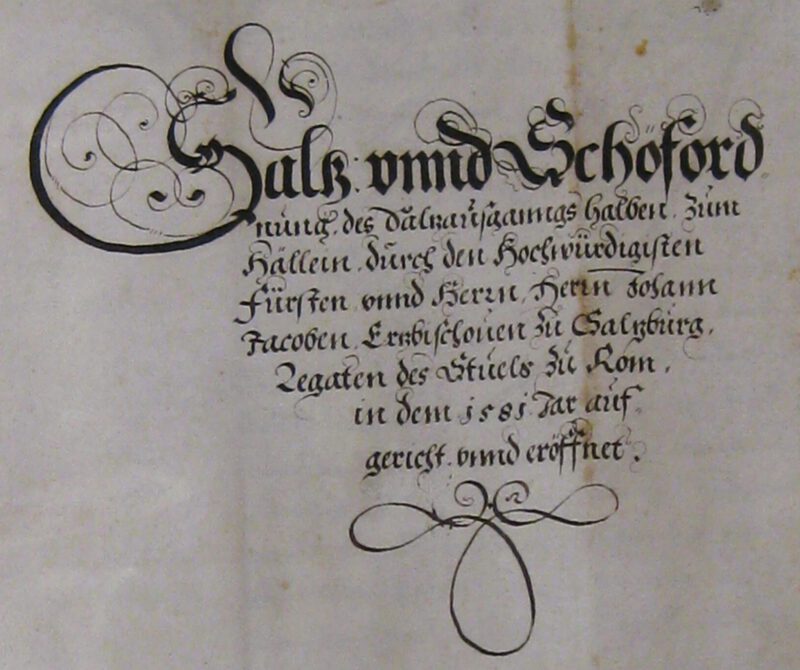 Saltz vnnd Schöford
nüng, des Saltzaüsganngs halben, züm
Hällein, dürch den Hochwürdigisten
Fürsten vnnd Herrn, Herrn Johann
Jacoben, Ertzbischouen zü Saltzbürg,
Legaten des Stüels zü Rom,
in dem 1581 Jar aüf
gericht vnnd eröffnet.